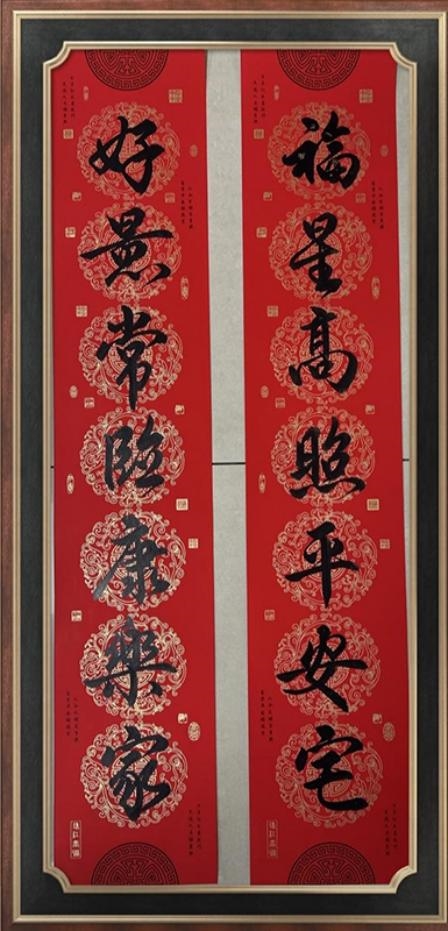 福星高照平安宅
好景常臨康樂家